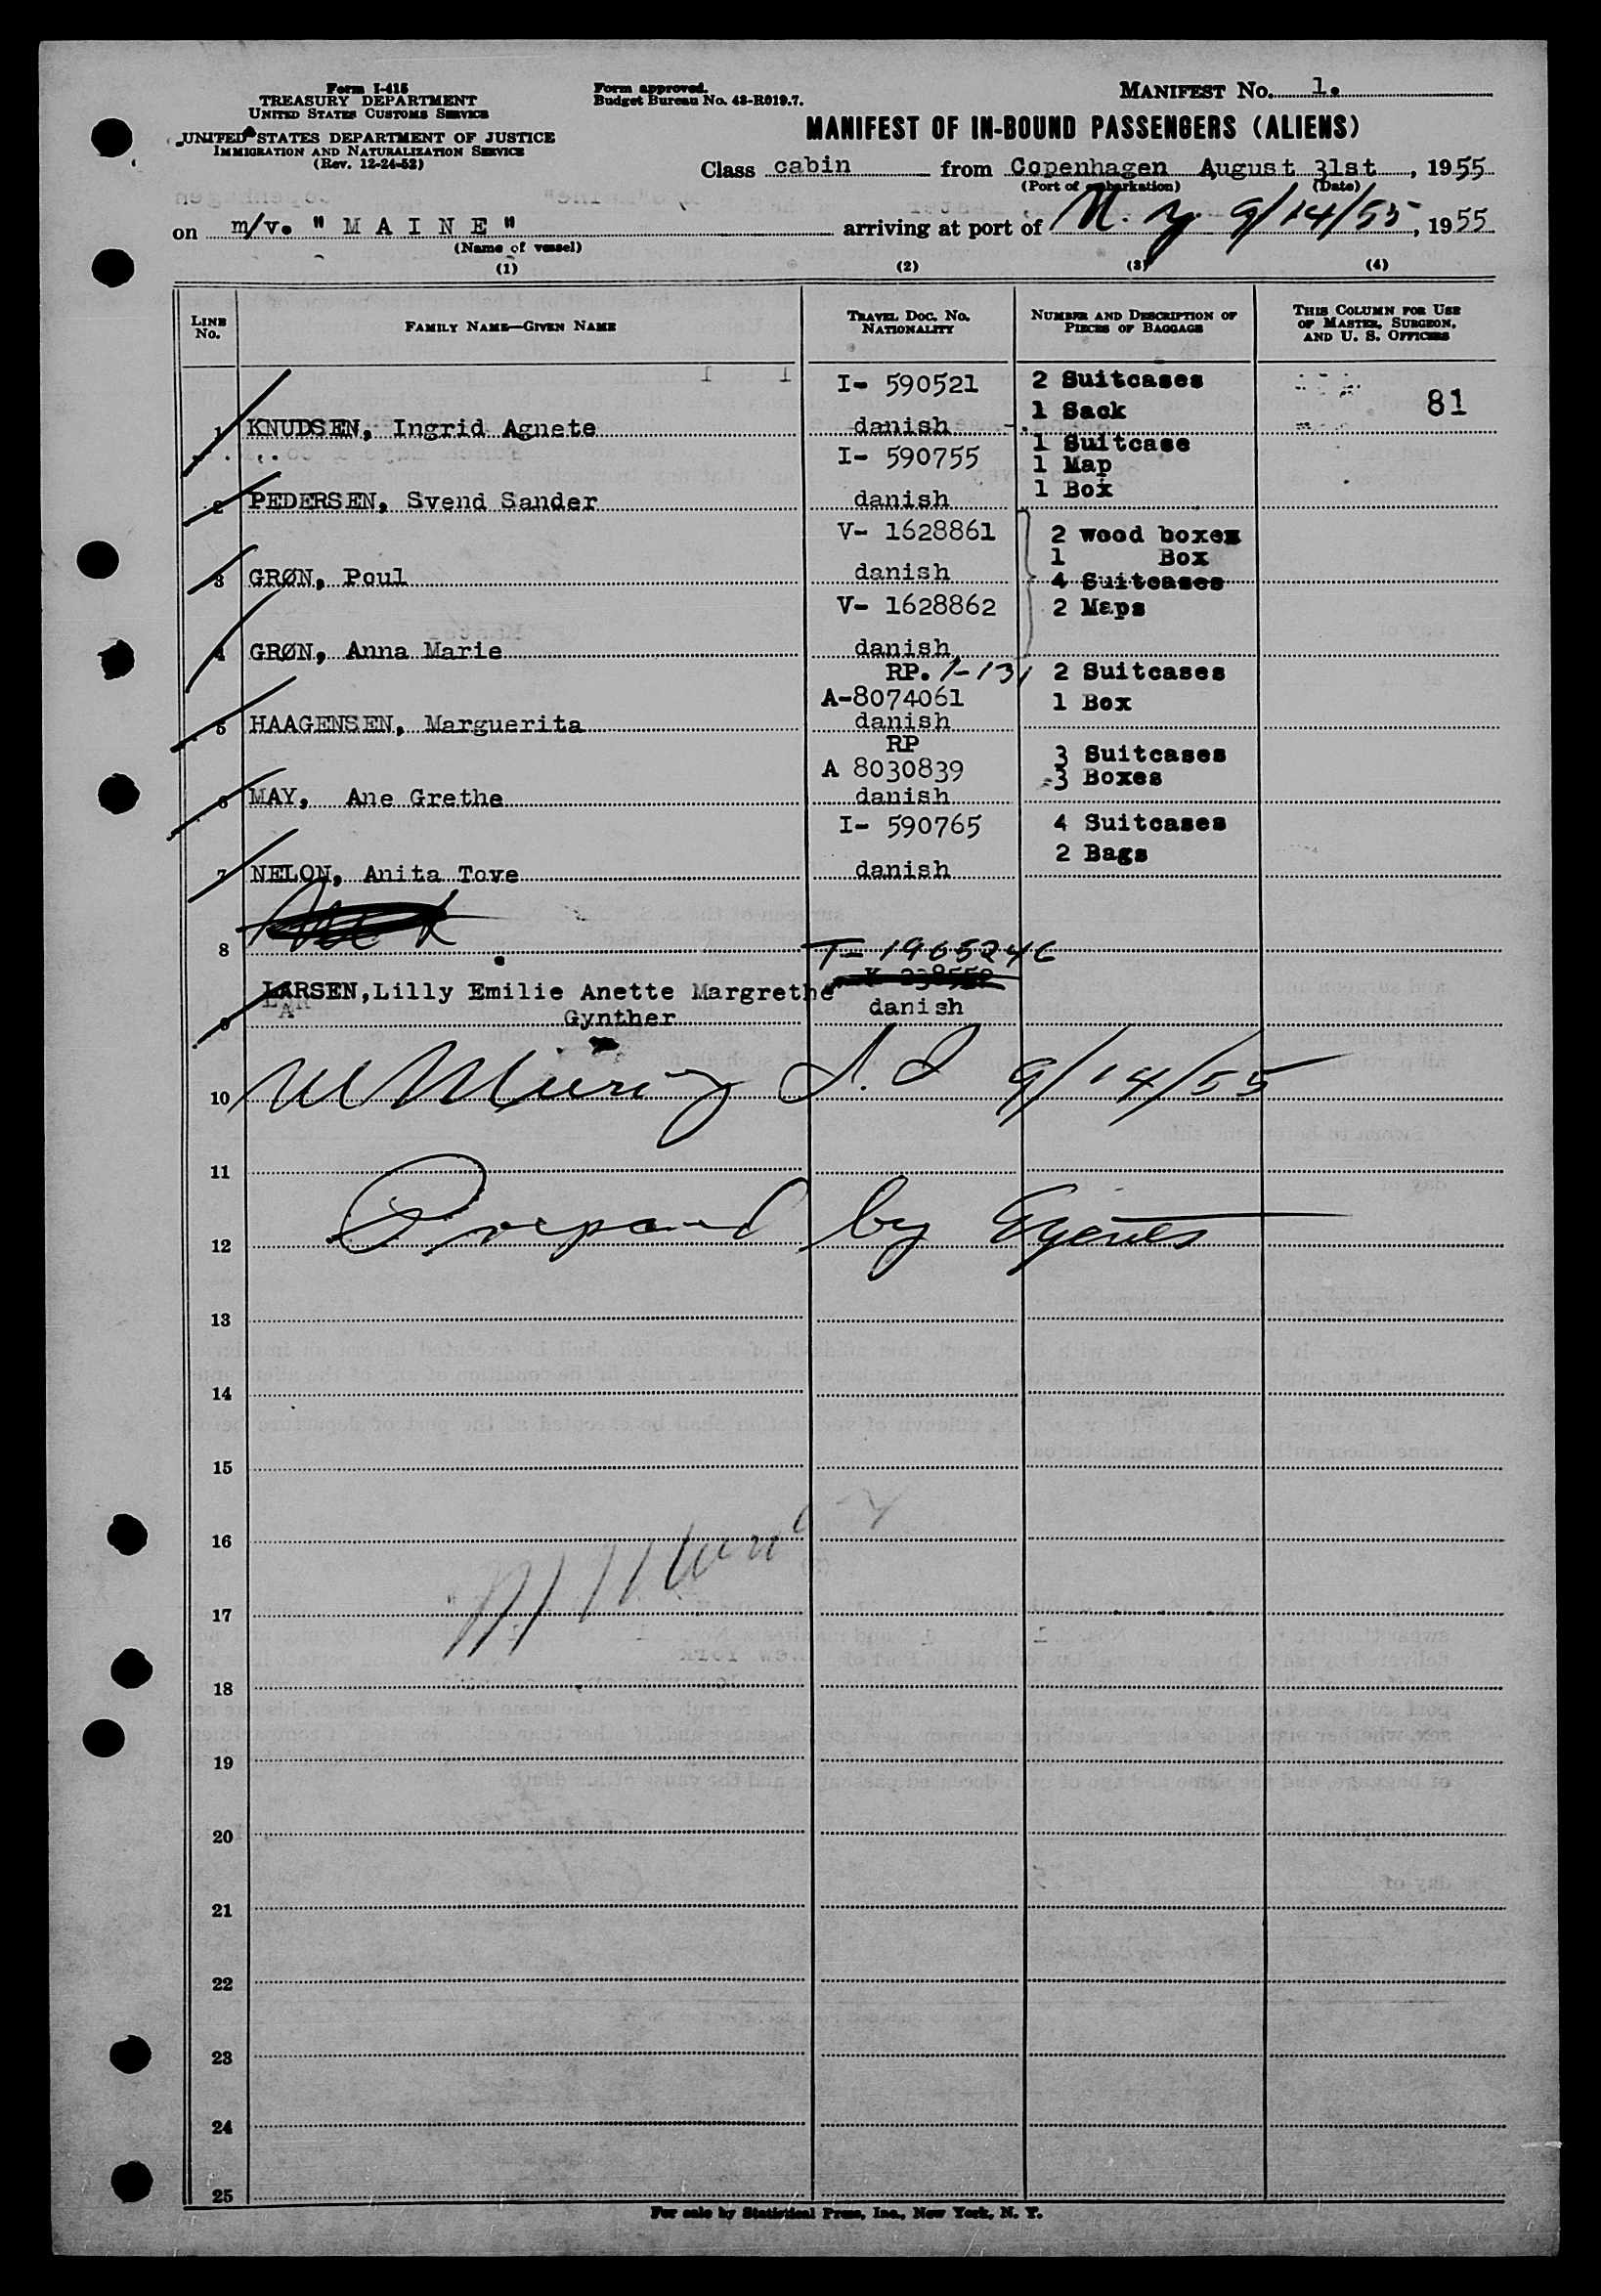 Form I-415
TREASURY DEPARTMENT
UNITED STATES CUSTOMS SERVICE
UNITED STATES DEPARTMENT OF JUSTICE
IMMIGRATION AND NATURALIZATION SERVICE
(Rev. 12-24-52)
Form approved.
Budget Bureau No. 43-R019.7.
MANIFEST NO. 1.
MANIFEST OF IN-BOUND PASSENGERS (ALIENS)
Class cabin from Copenhagen August 31st, 1955
(Port of embarkation) (Date)
on m/v. " M A I N E " arriving at port of N. Y. 9/14/55, 1955
(Name of vessel)
(1) (2) (3) (4)
LINE NO.
FAMILY NAME—GIVEN NAME
TRAVEL DOC. NO. NATIONALITY
NUMBER AND DESCRIPTION OF PIECES OF BAGGAGE
THIS COLUMN FOR USE OF MASTER, SURGEON, AND U. S. OFFICERS
I- 590521 2 Suitcases
81
1 Sack
1 KNUDSEN, Ingrid Agnete danish
1 Suitcase
I- 590755 1 Map
1 Box
2 PEDERSEN, Svend Sander danish
V- 1628861 2 wood boxes
1 Box
3 GRØN, Poul danish 4 Suitcases
V- 1628862 2 Maps
4 GRØN, Anna Marie danish
RP. 1-131 2 Suitcases
A-8074061 1 Box
5 HAAGENSEN, Marguerita danish
RP 3 Suitcases
A 8030839 3 Boxes
6 MAY, Ane Grethe danish
I- 590765 4 Suitcases
2 Bags
7 NELON, Anita Tove danish
8
T- 1965246
K 238552
LARSEN, Lilly Emilie Anette Margrethe
danish
9 Gynther
10 9/14/55
11
12 Prepared by
13
14
15
16
17
18
19
20
21
22
23
24
25
For sale by Statistical Press, Inc., New York, N. Y.